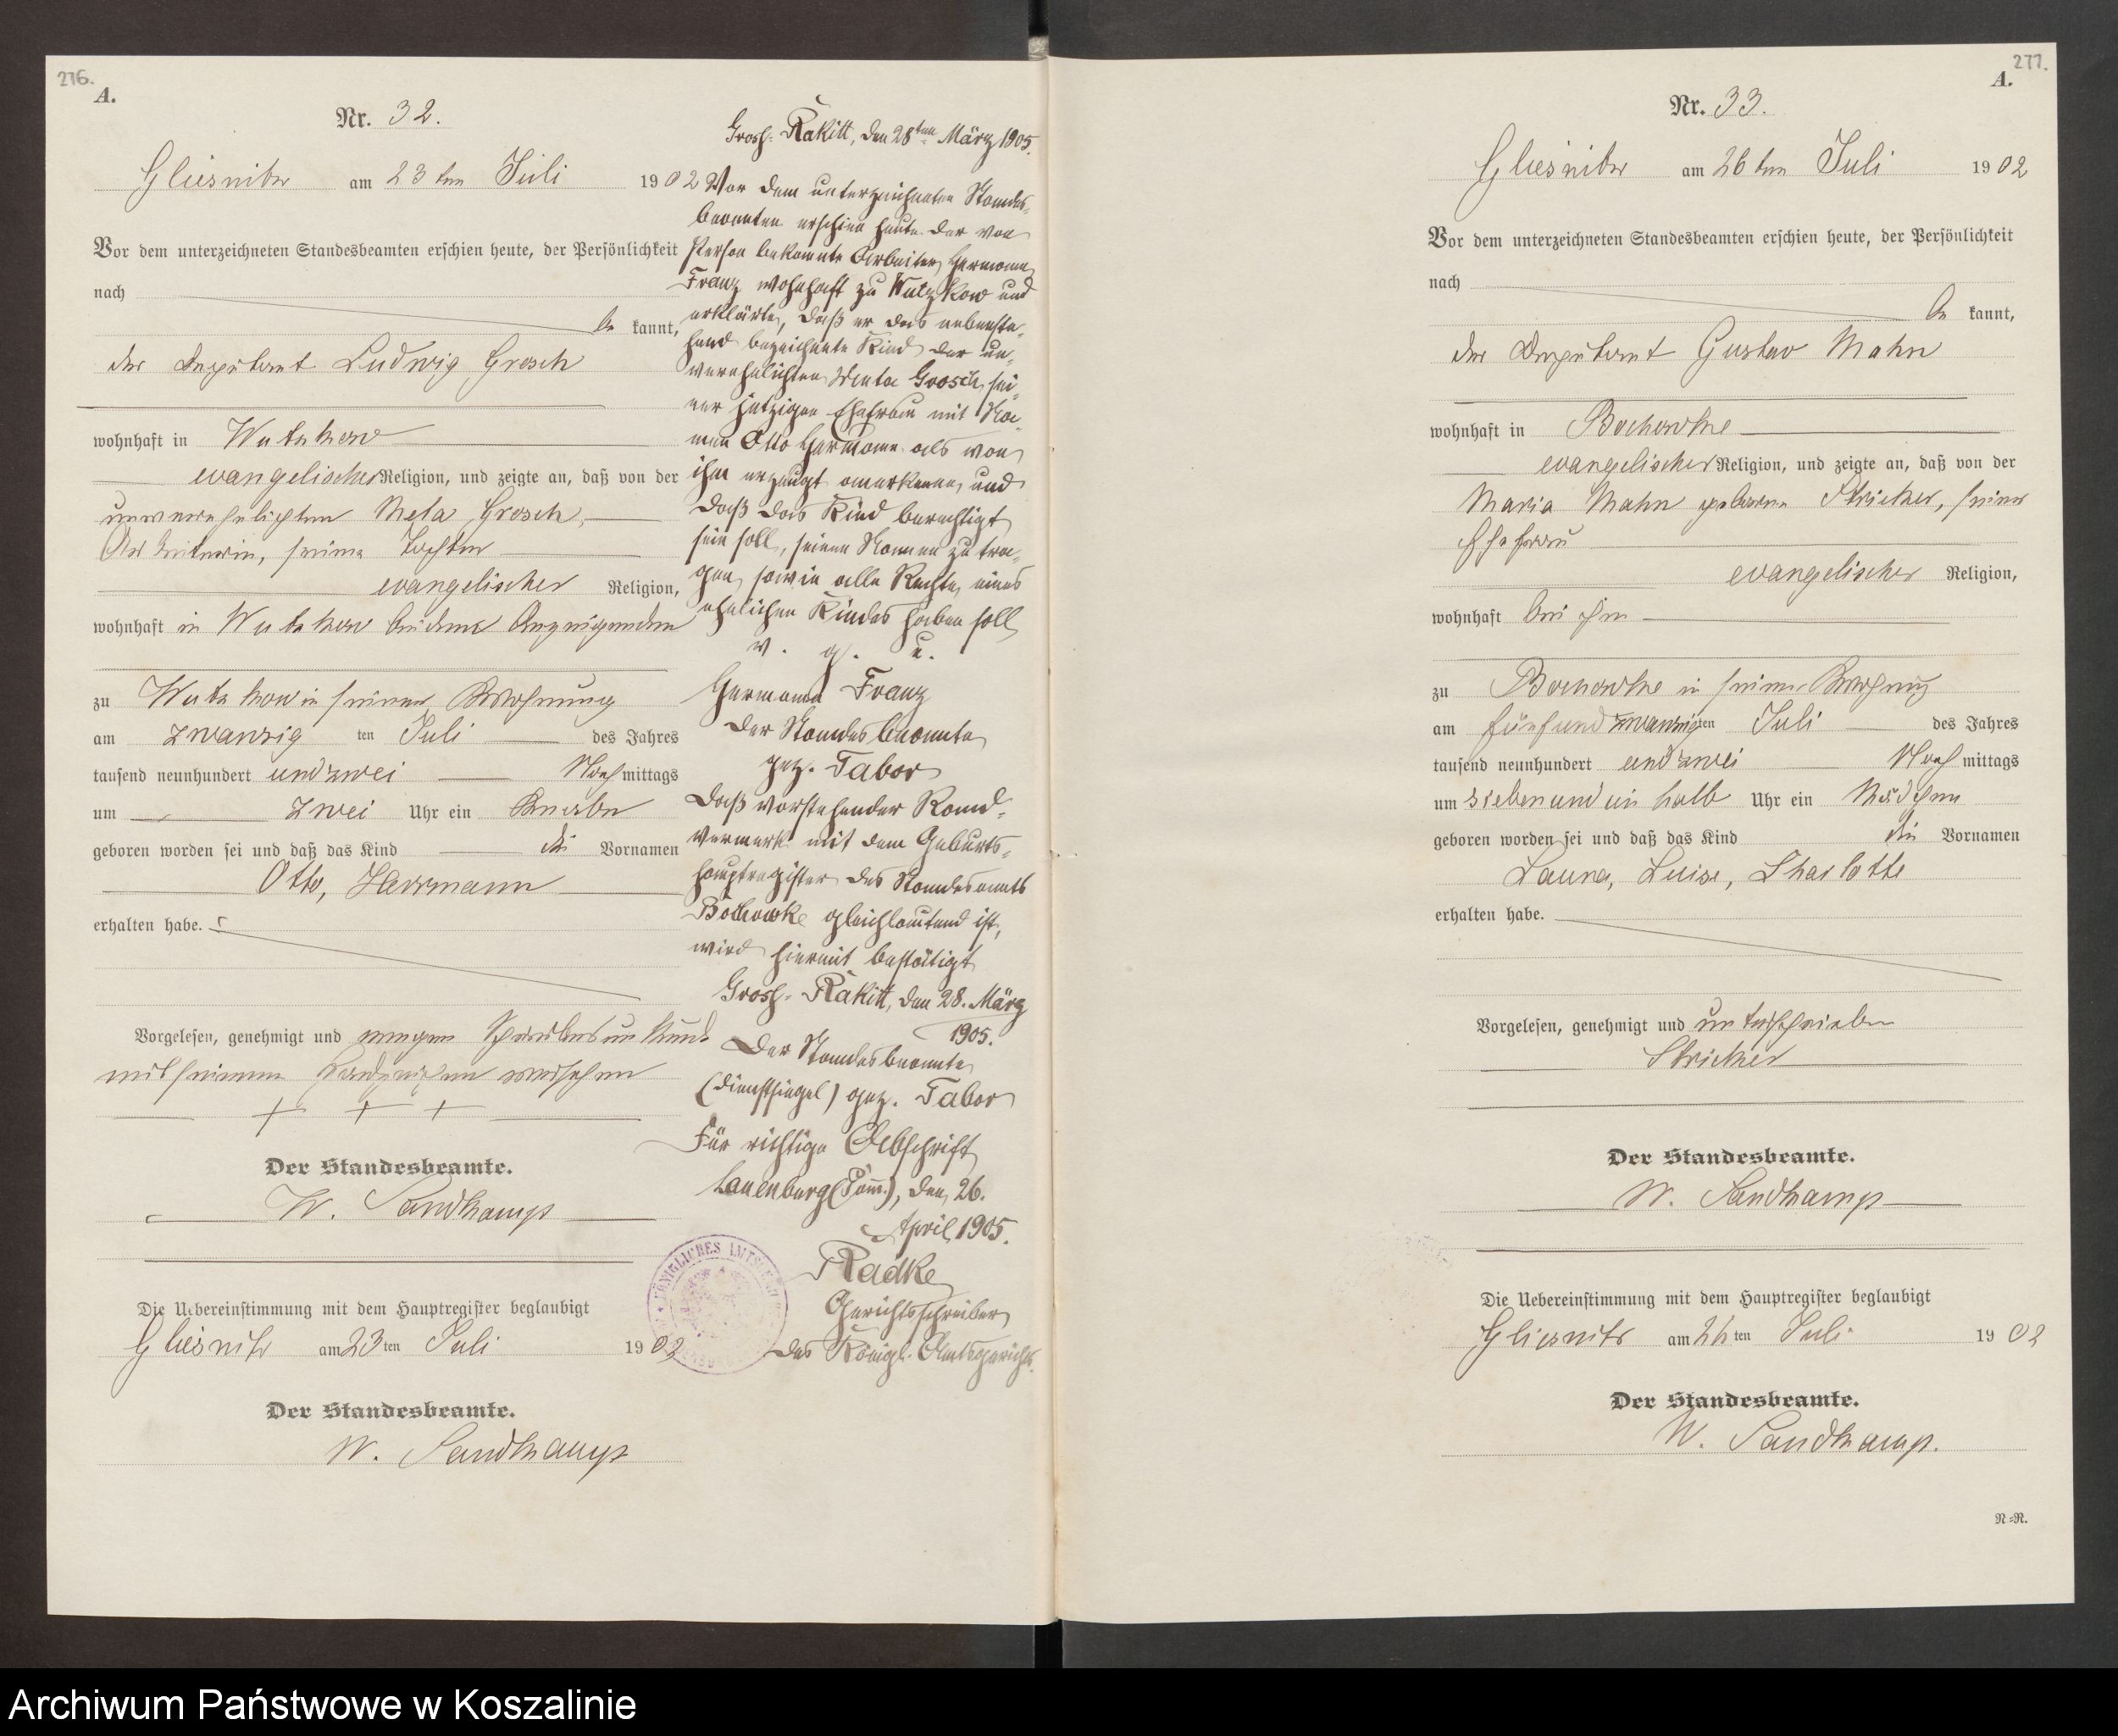 276.
A.
Nr. 32.
Gliesnitz am 23 ten Juli 1902
Vor dem unterzeichneten Standesbeamten erschien heute, der Persönlichkeit
nach
be kannt,
der Deputant Ludwig Grosch
wohnhaft in Wutzkow
evangelischer Religion, und zeigte an, daß von der
unverehelichten Meta Grosch,
Arbeiterin, seiner Tochter
evangelischer Religion,
wohnhaft in Wutzkow bei dem Anzeigenden
zu Wutzkow in seiner Wohnung
am zwanzig ten Juli des Jahres
tausend neunhundert und zwei Nach mittags
um zwei Uhr ein Knabe
geboren worden sei und daß das Kind die Vornamen
Otto, Herrmann
erhalten habe.
Vorgelesen, genehmigt und wegen Schreibensunkunde
mit seinem Handzeichen versehen
+ + +
Der Standesbeamte.
W. Sandkamp
Die Uebereinstimmung mit dem Hauptregister beglaubigt
Gliesnitz am 23 ten Juli 1902
Der Standesbeamte.
W. Sandkamp
Gross-Rakitt, den 28ten März 1905.
Vor dem unterzeichneten Standes-
beamten erschien heute der von
Person bekannte Arbeiter Hermann
Franz wohnhaft zu Wutzkow und
erklärte, daß er das nebenste-
hend bezeichnete Kind der un-
verehelichten Meta Grosch, sei-
ner jetzigen Ehefrau mit Na-
men Otto Hermann als von
ihm erzeugt anerkenne, und
daß das Kind berechtigt
sein soll, seinen Namen zu tra-
gen, sowie alle Rechte eines
ehelichen Kindes haben soll
v. g. u.
Hermann Franz
Der Standesbeamte
gez. Tabor
Daß vorstehender Rand-
vermerk mit dem Geburts-
hauptregister des Standesamts
Bochowke gleichlautend ist,
wird hiermit bestätigt
Gross-Rakitt, den 28. März
1905.
Der Standesbeamte
(Dienstsiegel) gez. Tabor
Für richtige Abschrift
Lauenburg (Pom.), den 26.
April 1905.
Radke
Gerichtsschreiber
des Königl. Amtsgerichts.
KÖNIGLICHES
277.
A.
Nr. 33.
Gliesnitz am 26 ten Juli 1902
Vor dem unterzeichneten Standesbeamten erschien heute, der Persönlichkeit
nach
be kannt,
der Deputant Gustav Mahn
wohnhaft in Bochowke
evangelischer Religion, und zeigte an, daß von der
Maria Mahn geborene Stricker, seiner
Ehefrau
evangelischer Religion,
wohnhaft bei ihm
zu Bochowke in seiner Wohnung
am fünfundzwanzig ten Juli des Jahres
tausend neunhundert und zwei Nach mittags
um sieben und ein halb Uhr ein Mädchen
geboren worden sei und daß das Kind die Vornamen
Luise, Charlotte
erhalten habe.
Vorgelesen, genehmigt und unterschrieben
Stricker
Der Standesbeamte.
W. Sandkamp
Die Uebereinstimmung mit dem Hauptregister beglaubigt
Gliesnitz am 26 ten Juli 1902
Der Standesbeamte.
W. Sandkamp.
N=R.
Archiwum Państwowe w Koszalinie